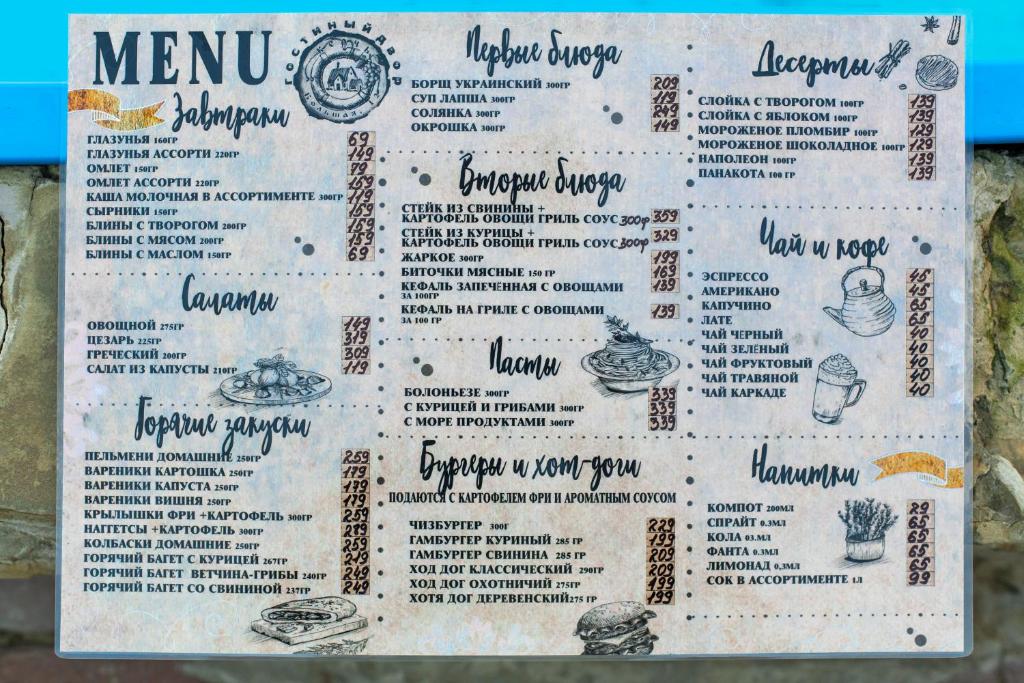 MENU
ГОСТИНЫЙ ДВОР
КЕРЧЬ
Завтраки
ГЛАЗУНЬЯ 160ГР 69
ГЛАЗУНЬЯ АССОРТИ 220ГР 149
ОМЛЕТ 150ГР 79
ОМЛЕТ АССОРТИ 220ГР 159
КАША МОЛОЧНАЯ В АССОРТИМЕНТЕ 300ГР 119
СЫРНИКИ 150ГР 159
БЛИНЫ С ТВОРОГОМ 200ГР 159
БЛИНЫ С МЯСОМ 200ГР 159
БЛИНЫ С МАСЛОМ 150ГР 69
Салаты
ОВОЩНОЙ 275ГР 149
ЦЕЗАРЬ 225ГР 319
ГРЕЧЕСКИЙ 200ГР 309
САЛАТ ИЗ КАПУСТЫ 210ГР 119
Горячие закуски
ПЕЛЬМЕНИ ДОМАШНИЕ 250ГР 259
ВАРЕНИКИ КАРТОШКА 250ГР 179
ВАРЕНИКИ КАПУСТА 250ГР 139
ВАРЕНИКИ ВИШНЯ 250ГР 179
КРЫЛЫШКИ ФРИ +КАРТОФЕЛЬ 300ГР 259
НАГГЕТСЫ +КАРТОФЕЛЬ 300ГР 219
КОЛБАСКИ ДОМАШНИЕ 250ГР 259
ГОРЯЧИЙ БАГЕТ С КУРИЦЕЙ 267ГР 219
ГОРЯЧИЙ БАГЕТ ВЕТЧИНА-ГРИБЫ 240ГР 249
ГОРЯЧИЙ БАГЕТ СО СВИНИНОЙ 237ГР 249
Первые блюда
БОРЩ УКРАИНСКИЙ 300ГР 209
СУП ЛАПША 300ГР 119
СОЛЯНКА 300ГР 249
ОКРОШКА 300ГР 149
Вторые блюда
СТЕЙК ИЗ СВИНИНЫ +
КАРТОФЕЛЬ ОВОЩИ ГРИЛЬ СОУС 300гр 359
СТЕЙК ИЗ КУРИЦЫ +
КАРТОФЕЛЬ ОВОЩИ ГРИЛЬ СОУС 300гр 329
ЖАРКОЕ 300ГР 199
БИТОЧКИ МЯСНЫЕ 150 ГР 169
КЕФАЛЬ ЗАПЕЧЁННАЯ С ОВОЩАМИ 139
ЗА 100ГР
КЕФАЛЬ НА ГРИЛЕ С ОВОЩАМИ 139
ЗА 100 ГР
Пасты
БОЛОНЬЕЗЕ 300ГР 339
С КУРИЦЕЙ И ГРИБАМИ 300ГР 339
С МОРЕ ПРОДУКТАМИ 300ГР 339
Бургеры и хот-доги
ПОДАЮТСЯ С КАРТОФЕЛЕМ ФРИ И АРОМАТНЫМ СОУСОМ
ЧИЗБУРГЕР 300Г 229
ГАМБУРГЕР КУРИНЫЙ 285 ГР 199
ГАМБУРГЕР СВИНИНА 285 ГР 209
ХОД ДОГ КЛАССИЧЕСКИЙ 290ГР 209
ХОД ДОГ ОХОТНИЧИЙ 275ГР 199
ХОТЯ ДОГ ДЕРЕВЕНСКИЙ275 ГР 199
Десерты
СЛОЙКА С ТВОРОГОМ 100ГР 139
СЛОЙКА С ЯБЛОКОМ 100ГР 139
МОРОЖЕНОЕ ПЛОМБИР 100ГР 129
МОРОЖЕНОЕ ШОКОЛАДНОЕ 100ГР 129
НАПОЛЕОН 100ГР 139
ПАНАКОТА 100 ГР 139
Чай и кофе
ЭСПРЕССО 45
АМЕРИКАНО 45
КАПУЧИНО 65
ЛАТЕ 65
ЧАЙ ЧЕРНЫЙ 40
ЧАЙ ЗЕЛЁНЫЙ 40
ЧАЙ ФРУКТОВЫЙ 40
ЧАЙ ТРАВЯНОЙ 40
ЧАЙ КАРКАДЕ 40
Напитки
КОМПОТ 200МЛ 29
СПРАЙТ 0.3МЛ 65
КОЛА 03.МЛ 65
ФАНТА 0.3МЛ 65
ЛИМОНАД 0,3МЛ 65
СОК В АССОРТИМЕНТЕ 1Л 99